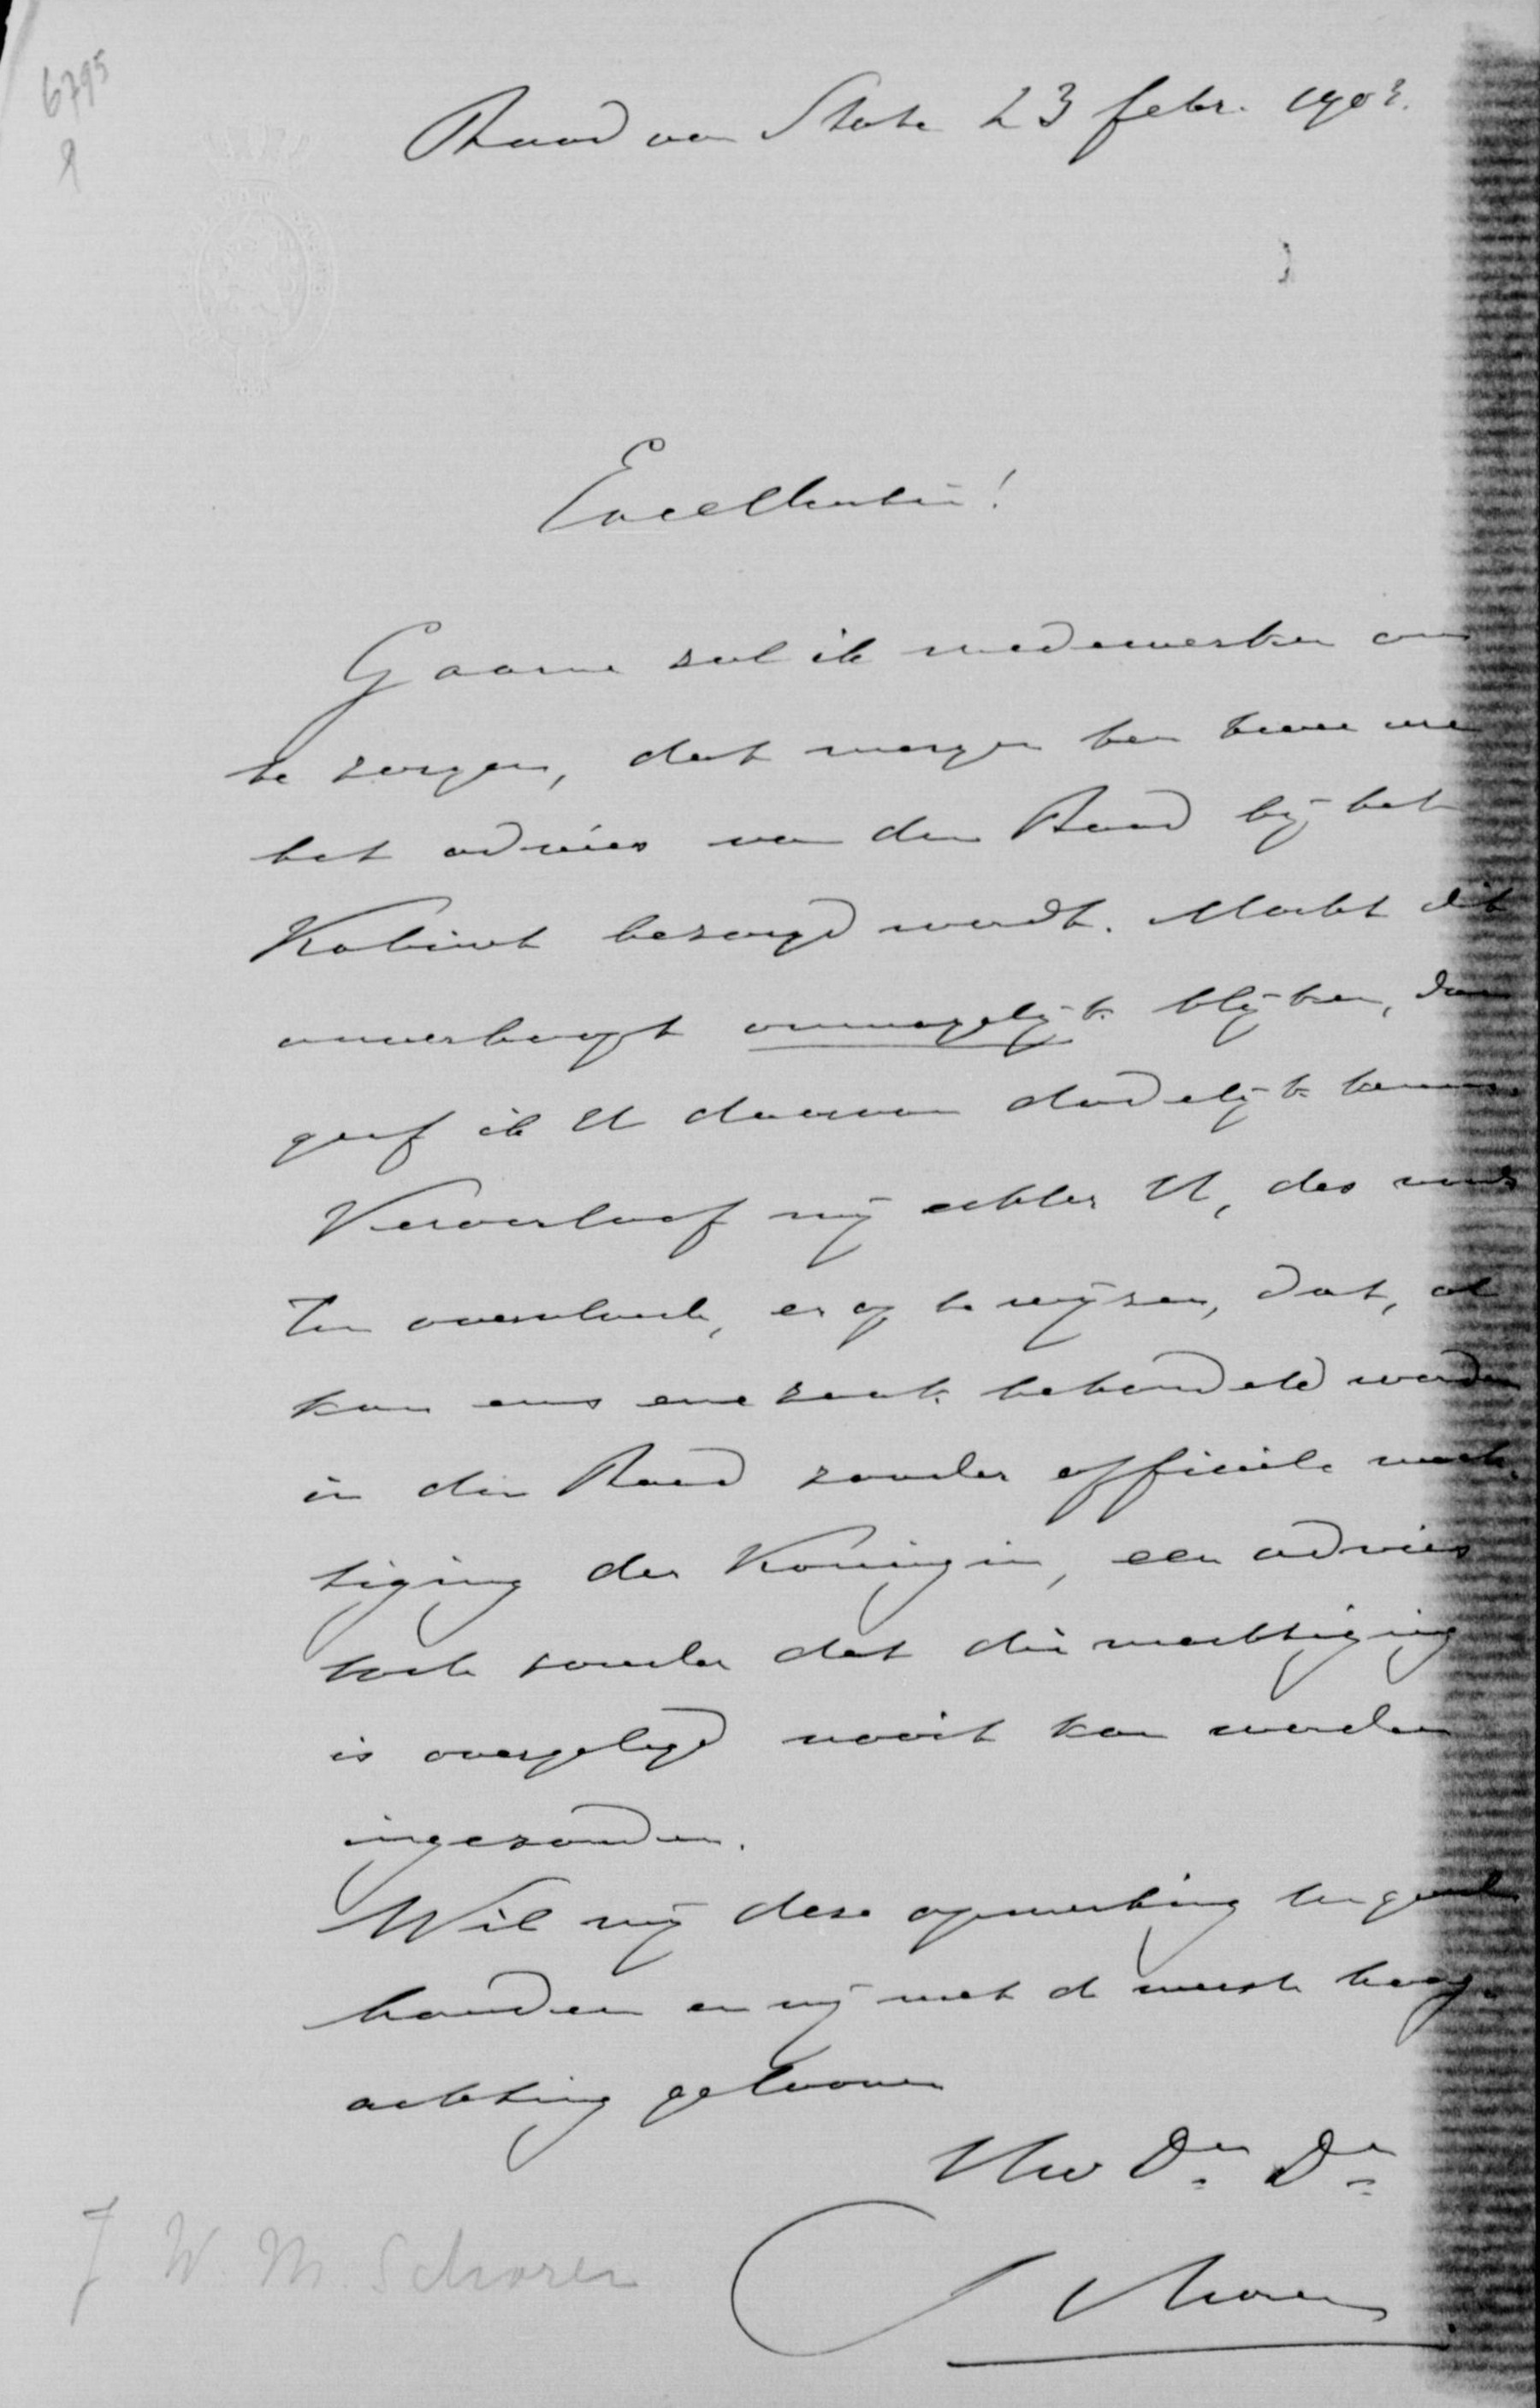 6795
Raad van State 23 febr. 1903.
Excellentie!
Gaarne zal ik medewerken om
te zorgen, dat morgen ten twee ure
het advies van den Raad bij het
Kabinet bezorgd wordt. Mocht dit
onverhoopt onmogelijk blijken, dan
geef ik U daarvan dadelijk kennis.
Veroorloof mij echter U, des noods
ten overvloede, er op te wijzen, dat, al
kan eens eene zaak behandeld worden
in den Raad zonder officiële mach-
tiging der Koningin, een advies
toch zonder dat die machtiging
is overgelegd nooit kan worden
ingezonden.
Wil mij deze opmerking ten goede
houden en mij met de meeste hoog-
achting gelooven
Uw Dw Dr
Schorer
J W. M. Schorer